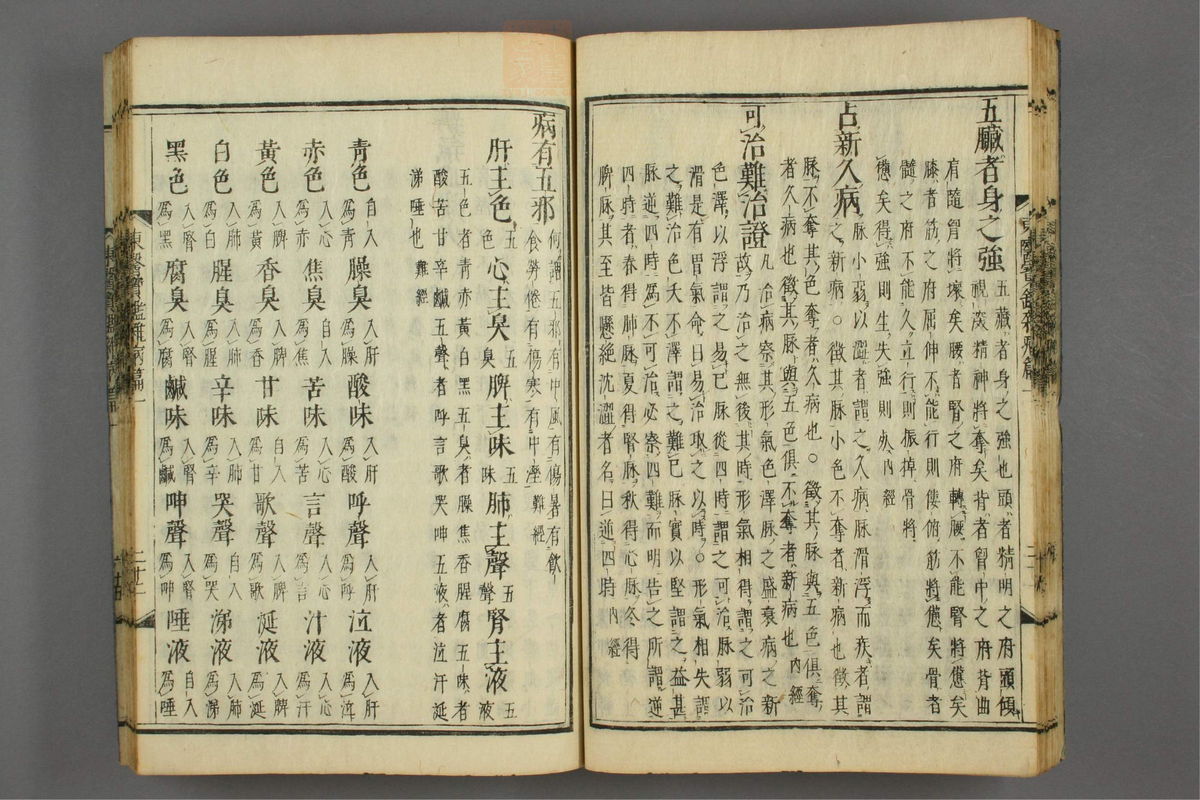 五臟者身之強五藏者身之強也頭者精明之府頭傾
視深精神將奪矣背者胷中之府背曲
肩隨胷將壞矣腰者腎之府轉搖不能腎將憊矣
膝者筋之府屈伸不能行則僂俯筋將憊矣骨者
髓之府不能久立行則振掉骨將
憊矣得強則生失強則死內經
占新久病脉小弱以澁者謂之久病脉滑浮而疾者謂
之新病○徵其脉小色不奪者新病也徵其
脉不奪其色奪者久病也○徵其脉與五色俱奪
者久病也徵其脉與五色俱不奪者新病也內經
可治難治證凡治病察其形氣色澤脉之盛衰病之新
故乃治之無後其時形氣相得謂之可治
色澤以浮謂之易已脉從四時謂之可治脉弱以
滑是有胃氣命曰易治取之以時○形氣相失謂
之難治色夭不澤謂之難已脉實以堅謂之益甚
脉逆四時爲不可治必察四難而明告之所謂逆
四時者春得肺脉夏得腎脉秋得心脉冬得
脾脉其至皆懸絶沈澁者名曰逆四時內經
病有五邪何謂五邪有中風有傷暑有飮
食勞倦有傷寒有中濕難經
肝主色五色心主臭五臭脾主味五味肺主聲五聲腎主液五液
五色者青赤黃白黑五臭者臊焦香腥腐五味者
酸苦甘辛鹹五聲者呼言歌哭呻五液者泣汗涎
涕唾也難經
青色自入爲青臊臭入肝爲臊酸味入肝爲酸呼聲入肝爲呼泣液入肝爲泣
赤色入心爲赤焦臭自入爲焦苦味入心爲苦言聲入心爲言汁液入心爲汗
黃色入脾爲黃香臭入脾爲香甘味自入爲甘歌聲入脾爲歌涎液入脾爲涎
白色入肺爲白腥臭入肺爲腥辛味入肺爲辛哭聲自入爲哭涕液入肺爲涕
黑色入腎爲黑腐臭入腎爲腐鹹味入腎爲鹹呻聲入腎爲呻唾液自入爲唾
東醫寶鑑雜病篇一